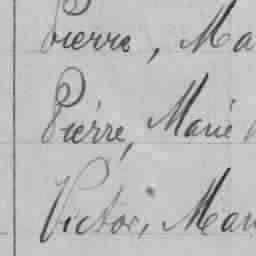 Pierre, Ma
Pierre, Marie
Victor, Mar